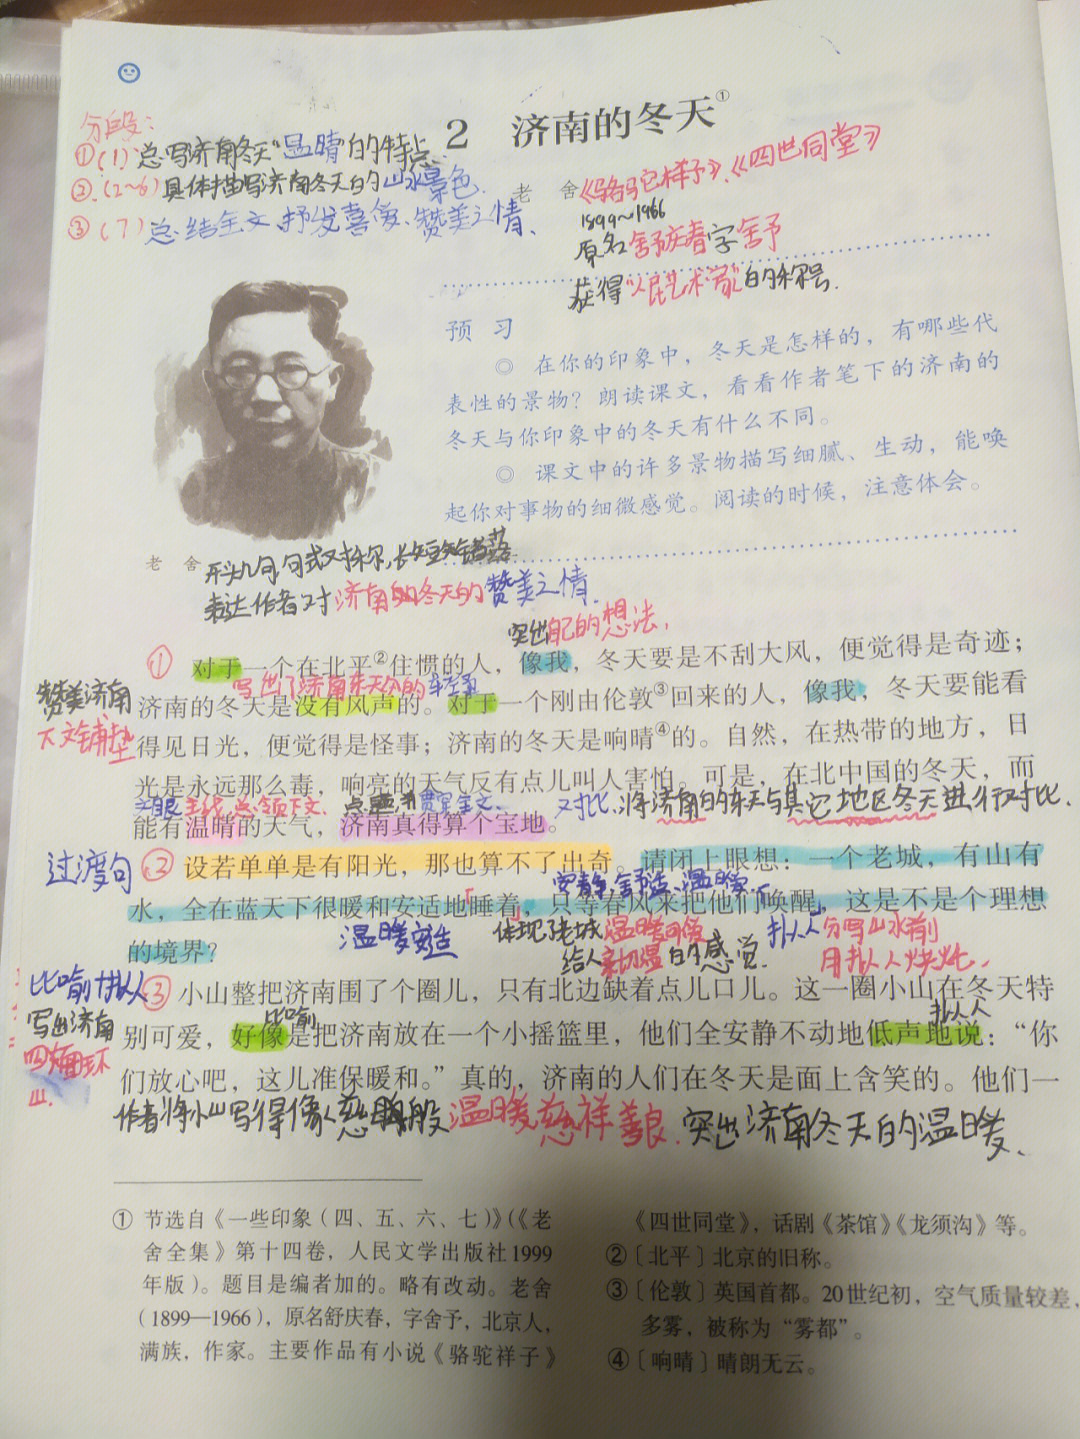 分段：
①(1)总写济南冬天"温晴"的特点.
②.(2~6)具体描写济南冬天的山水景色.
③(7)总结全文.抒发喜爱、赞美之情、
2 济南的冬天①
老 舍《骆驼样子》、《四世同堂》
1899~1966
原名舒庆春字舍予
获得"人民艺术家"的称号.
预 习
◎ 在你的印象中，冬天是怎样的，有哪些代
表性的景物？朗读课文，看看作者笔下的济南的
冬天与你印象中的冬天有什么不同。
◎ 课文中的许多景物描写细腻、生动，能唤
起你对事物的细微感觉。阅读的时候，注意体会。
老 舍
开头几句,句式对称,长短错落
表达作者对济南的冬天的赞美之情.
突出自己的想法,
① 对于一个在北平②住惯的人，像我，冬天要是不刮大风，便觉得是奇迹；
写出了济南冬天的
赞美济南
下文铺垫
济南的冬天是没有风声的。对于一个刚由伦敦③回来的人，像我，冬天要能看
得见日光，便觉得是怪事；济南的冬天是响晴④的。自然，在热带的地方，日
光是永远那么毒，响亮的天气反有点儿叫人害怕。可是，在北中国的冬天，而
文眼 主线,总领下文. 贯穿全文. 对比.将济南的冬天与其它地区冬天进行对比.
能有温晴的天气，济南真得算个宝地。
过渡句
② 设若单单是有阳光，那也算不了出奇。请闭上眼想：一个老城，有山有
安静,舒适、温暖.
水，全在蓝天下很暖和安适地睡着，只等春风来把他们唤醒，这是不是个理想
温暖 体现了老城温暖可爱 拟人 分写山水前
的境界？
给人亲切温的感觉. 用拟人
比喻拟人
写出济南
四面环
山.
③ 小山整把济南围了个圈儿，只有北边缺着点儿口儿。这一圈小山在冬天特
比喻 拟人
别可爱，好像是把济南放在一个小摇篮里，他们全安静不动地低声地说：“你
们放心吧，这儿准保暖和。”真的，济南的人们在冬天是面上含笑的。他们一
作者将小山写得像人慈般温暖慈祥善良.突出济南冬天的温暖、
① 节选自《一些印象（四、五、六、七）》（《老
舍全集》第十四卷，人民文学出版社1999
年版）。题目是编者加的。略有改动。老舍
（1899—1966），原名舒庆春，字舍予，北京人，
满族，作家。主要作品有小说《骆驼祥子》
《四世同堂》，话剧《茶馆》《龙须沟》等。
②〔北平〕北京的旧称。
③〔伦敦〕英国首都。20世纪初，空气质量较差，
多雾，被称为“雾都”。
④〔响晴〕晴朗无云。